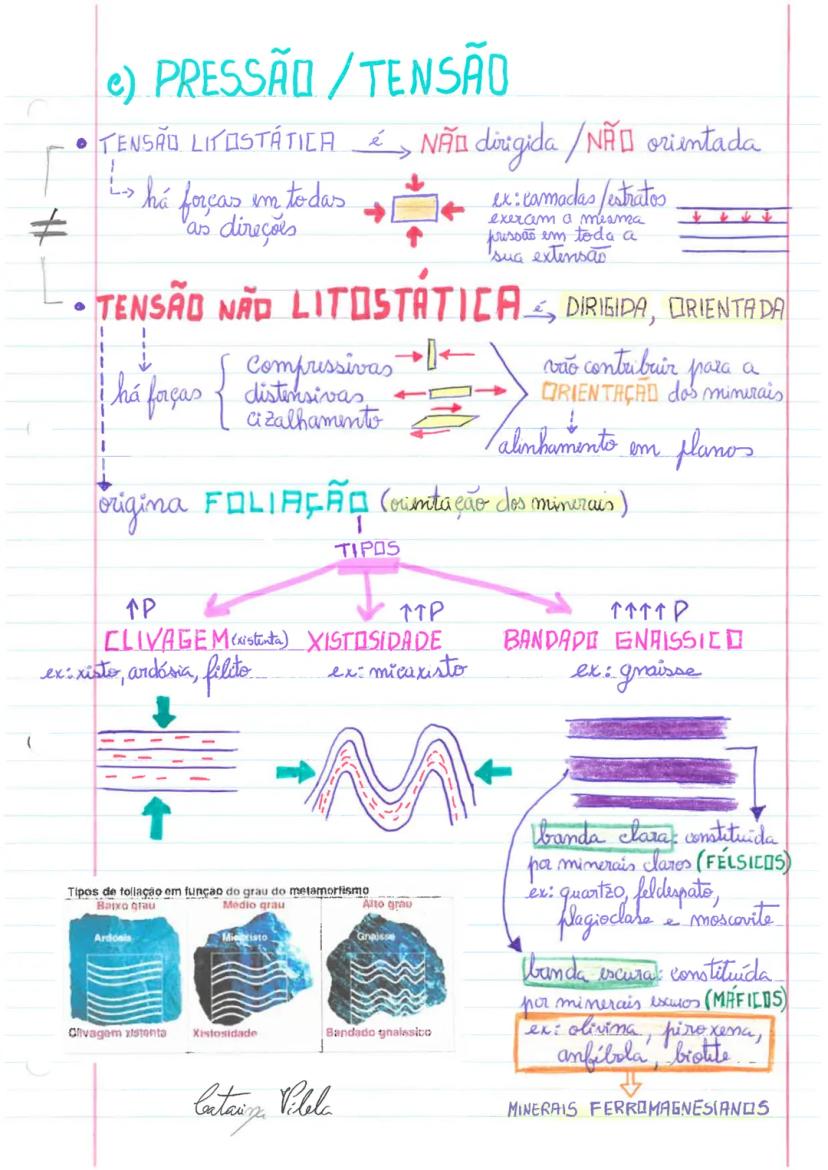 c) PRESSÃO / TENSÃO
• TENSÃO LITOSTÁTICA é → NÃO dirigida / NÃO orientada
↳ há forças em todas
as direções
ex: camadas/estratos
exercem a mesma
pressão em toda a
sua extensão
≠
• TENSÃO NÃO LITOSTÁTICA é → DIRIGIDA, ORIENTADA
há forças { compressivas
distensivas
cizalhamento
vão contribuir para a
ORIENTAÇÃO dos minerais
alinhamento em planos
origina FOLIAÇÃO (orientação dos minerais)
TIPOS
↑P
CLIVAGEM (xistenta)
ex: xisto, ardósia, filito
↑↑P
XISTOSIDADE
ex: micaxisto
↑↑↑↑P
BANDADO GNAISSICO
ex: gnaisse
banda clara: constituída
por minerais claros (FÉLSICOS)
ex: quartzo, feldespato,
plagioclase e moscovite
banda escura: constituída
por minerais escuros (MÁFICOS)
ex: olivina, piroxena,
anfíbola, biotite...
MINERAIS FERROMAGNESIANOS
Tipos de foliação em função do grau do metamorfismo
Baixo grau
Ardósia
Clivagem xistenta
Médio grau
Micaxisto
Xistosidade
Alto grau
Gnaisse
Bandado gnaissico
Catarina Vilela